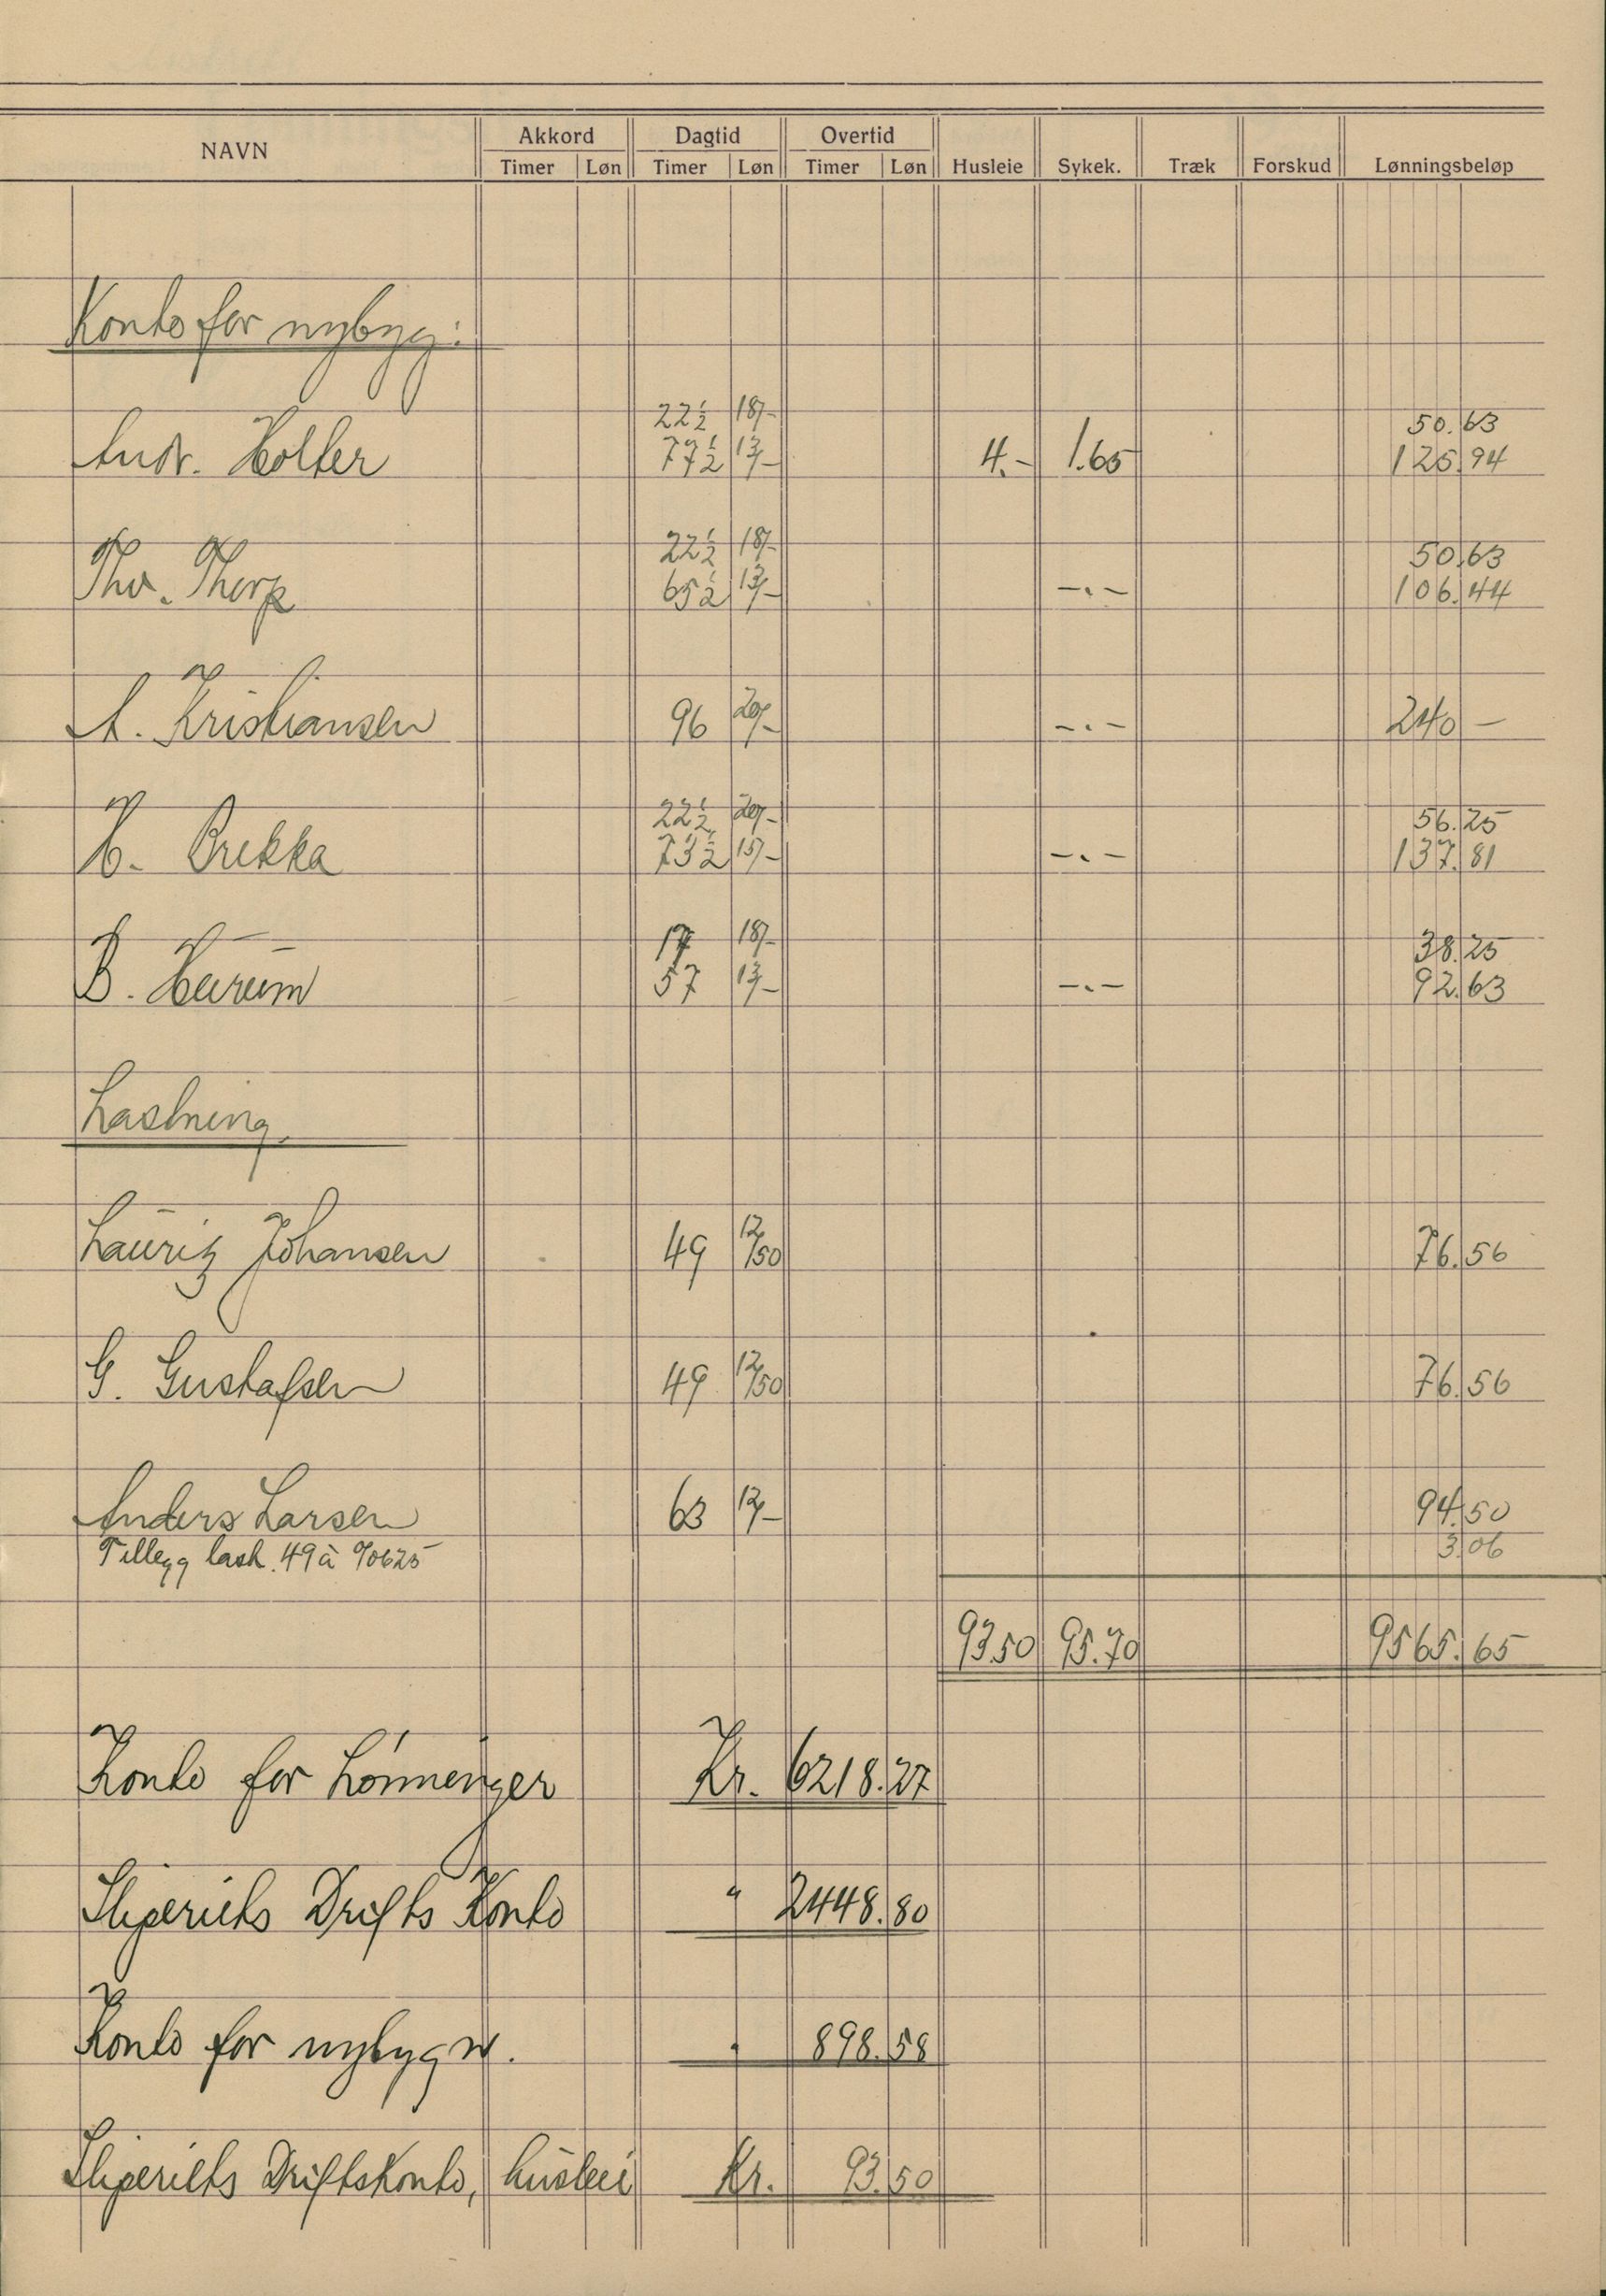 NAVN Akkord Dagtid Overtid Husleie Sykek. Træk Forskud Lønningsbeløp
Timer Løn Timer Løn Timer Løn
Konto for nybyg:
22½ 18/- 50.63
Andr. Holter 77½ 13/- 4.- 1.65 125.94
22½ 18/- 50.63
Thv. Thorp 65½ 13/- -.- 106.44
A. Kristiansen 96 20/- -.- 240 -
22½ 20/- 56.25
H. Brekka 73½ 15/- -.- 137.81
17 18/- 38.25
B. Heirum 57 13/- -.- 92.63
Lastning.
Lauritz Johansen 49 12/50 76.56
G. Gustafsen 49 12/50 76.56
Anders Larsen 63 12/- 94.50
Tillegg last. 49 à 0/0625 3.06
93.50 95.70 9565.65
Konto for Lønninger Kr. 6218.27
Sliperiets Drifts Konto " 2448.80
Konto for nybygn. " 898.58
Sliperiets Driftskonto, husleie Kr. 93.50